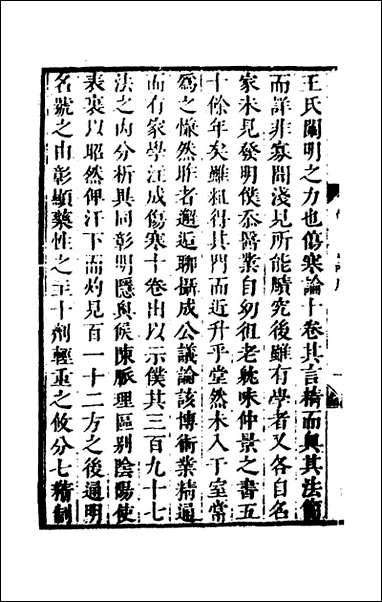 王氏闡明之力也傷寒論十卷其言精而奧其法簡
而詳非寡聞淺見所能賾究後雖有學者又各自名
家未見發明僕忝醫業自幼徂老耽味仲景之書五
十餘年矣雖粗得其門而近升乎堂然未入于室常
爲之慊然昨者邂逅聊攝成公議論該博術業精通
而有家學注成傷寒十卷出以示僕其三百九十七
法之內分析異同彰明隱奧候陳脈理區别陰陽使
表裏以昭然俾汗下而灼見百一十二方之後通明
名號之由彰顯藥性之主十劑輕重之攸分七精制